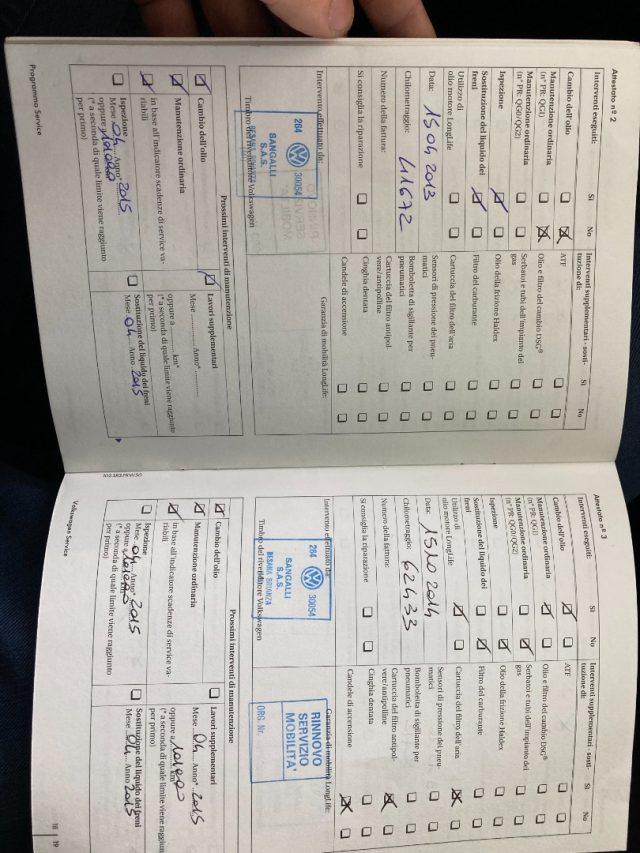 Attestato nº 2
Interventi eseguiti: Sì No
Cambio dell'olio
Manutenzione ordinaria
(nº PR: QGI)
Manutenzione ordinaria
(nº PR: QG0/QG2)
Ispezione
Sostituzione del liquido dei
freni
Utilizzo di
olio motore LongLife
Data: 15 04 2013
Chilometraggio: 41672
Numero della fattura:
Si consiglia la riparazione
Intervento effettuato da:
264 30054
SANGALLI
S.A.S.
BESANA BRIANZA
Timbro del rivenditore Volkswagen
Interventi supplementari - sosti-
tuzione di: Sì No
ATF
Olio e filtro del cambio DSG®
Serbatoi e tubi dell'impianto del
gas
Olio della frizione Haldex
Filtro del carburante
Cartuccia del filtro dell'aria
Sensori di pressione dei pneu-
matici
Bomboletta di sigillante per
pneumatici
Cartuccia del filtro antipol-
vere/antipolline
Cinghia dentata
Candele di accensione
Garanzia di mobilità LongLife:
Prossimi interventi di manutenzione
Cambio dell'olio
Manutenzione ordinaria
in base all'indicatore scadenze di service va-
riabili
Ispezione
Mese 04 Anno* 2015
oppure a
(* a seconda di quale limite viene raggiunto
per primo)
Lavori supplementari
Mese Anno*
oppure a km*
(* a seconda di quale limite viene raggiunto
per primo)
Sostituzione del liquido dei freni
Mese 04 Anno 2015
Programma Service
102.5R2.FRW.50
Attestato nº 3
Interventi eseguiti: Sì No
Cambio dell'olio
Manutenzione ordinaria
(nº PR: QGI)
Manutenzione ordinaria
(nº PR: QG0/QG2)
Ispezione
Sostituzione del liquido dei
freni
Utilizzo di
olio motore LongLife
Data: 15 10 2014
Chilometraggio: 62433
Numero della fattura:
Si consiglia la riparazione
Intervento effettuato da:
264 30054
SANGALLI
S.A.S.
BESANA BRIANZA
Timbro del rivenditore Volkswagen
Interventi supplementari - sosti-
tuzione di: Sì No
ATF
Olio e filtro del cambio DSG®
Serbatoi e tubi dell'impianto del
gas
Olio della frizione Haldex
Filtro del carburante
Cartuccia del filtro dell'aria
Sensori di pressione dei pneu-
matici
Bomboletta di sigillante per
pneumatici
Cartuccia del filtro antipol-
vere/antipolline
Cinghia dentata
Candele di accensione
Garanzia di mobilità LongLife:
RINNOVO
SERVIZIO
MOBILITA'
ORG. Nr.
Prossimi interventi di manutenzione
Cambio dell'olio
Manutenzione ordinaria
in base all'indicatore scadenze di service va-
riabili
Ispezione
Mese 04 Anno* 2015
oppure a
(* a seconda di quale limite viene raggiunto
per primo)
Lavori supplementari
Mese 04 Anno* 2015
oppure a km*
(* a seconda di quale limite viene raggiunto
per primo)
Sostituzione del liquido dei freni
Mese 04 Anno 2015
Volkswagen Service
18 19